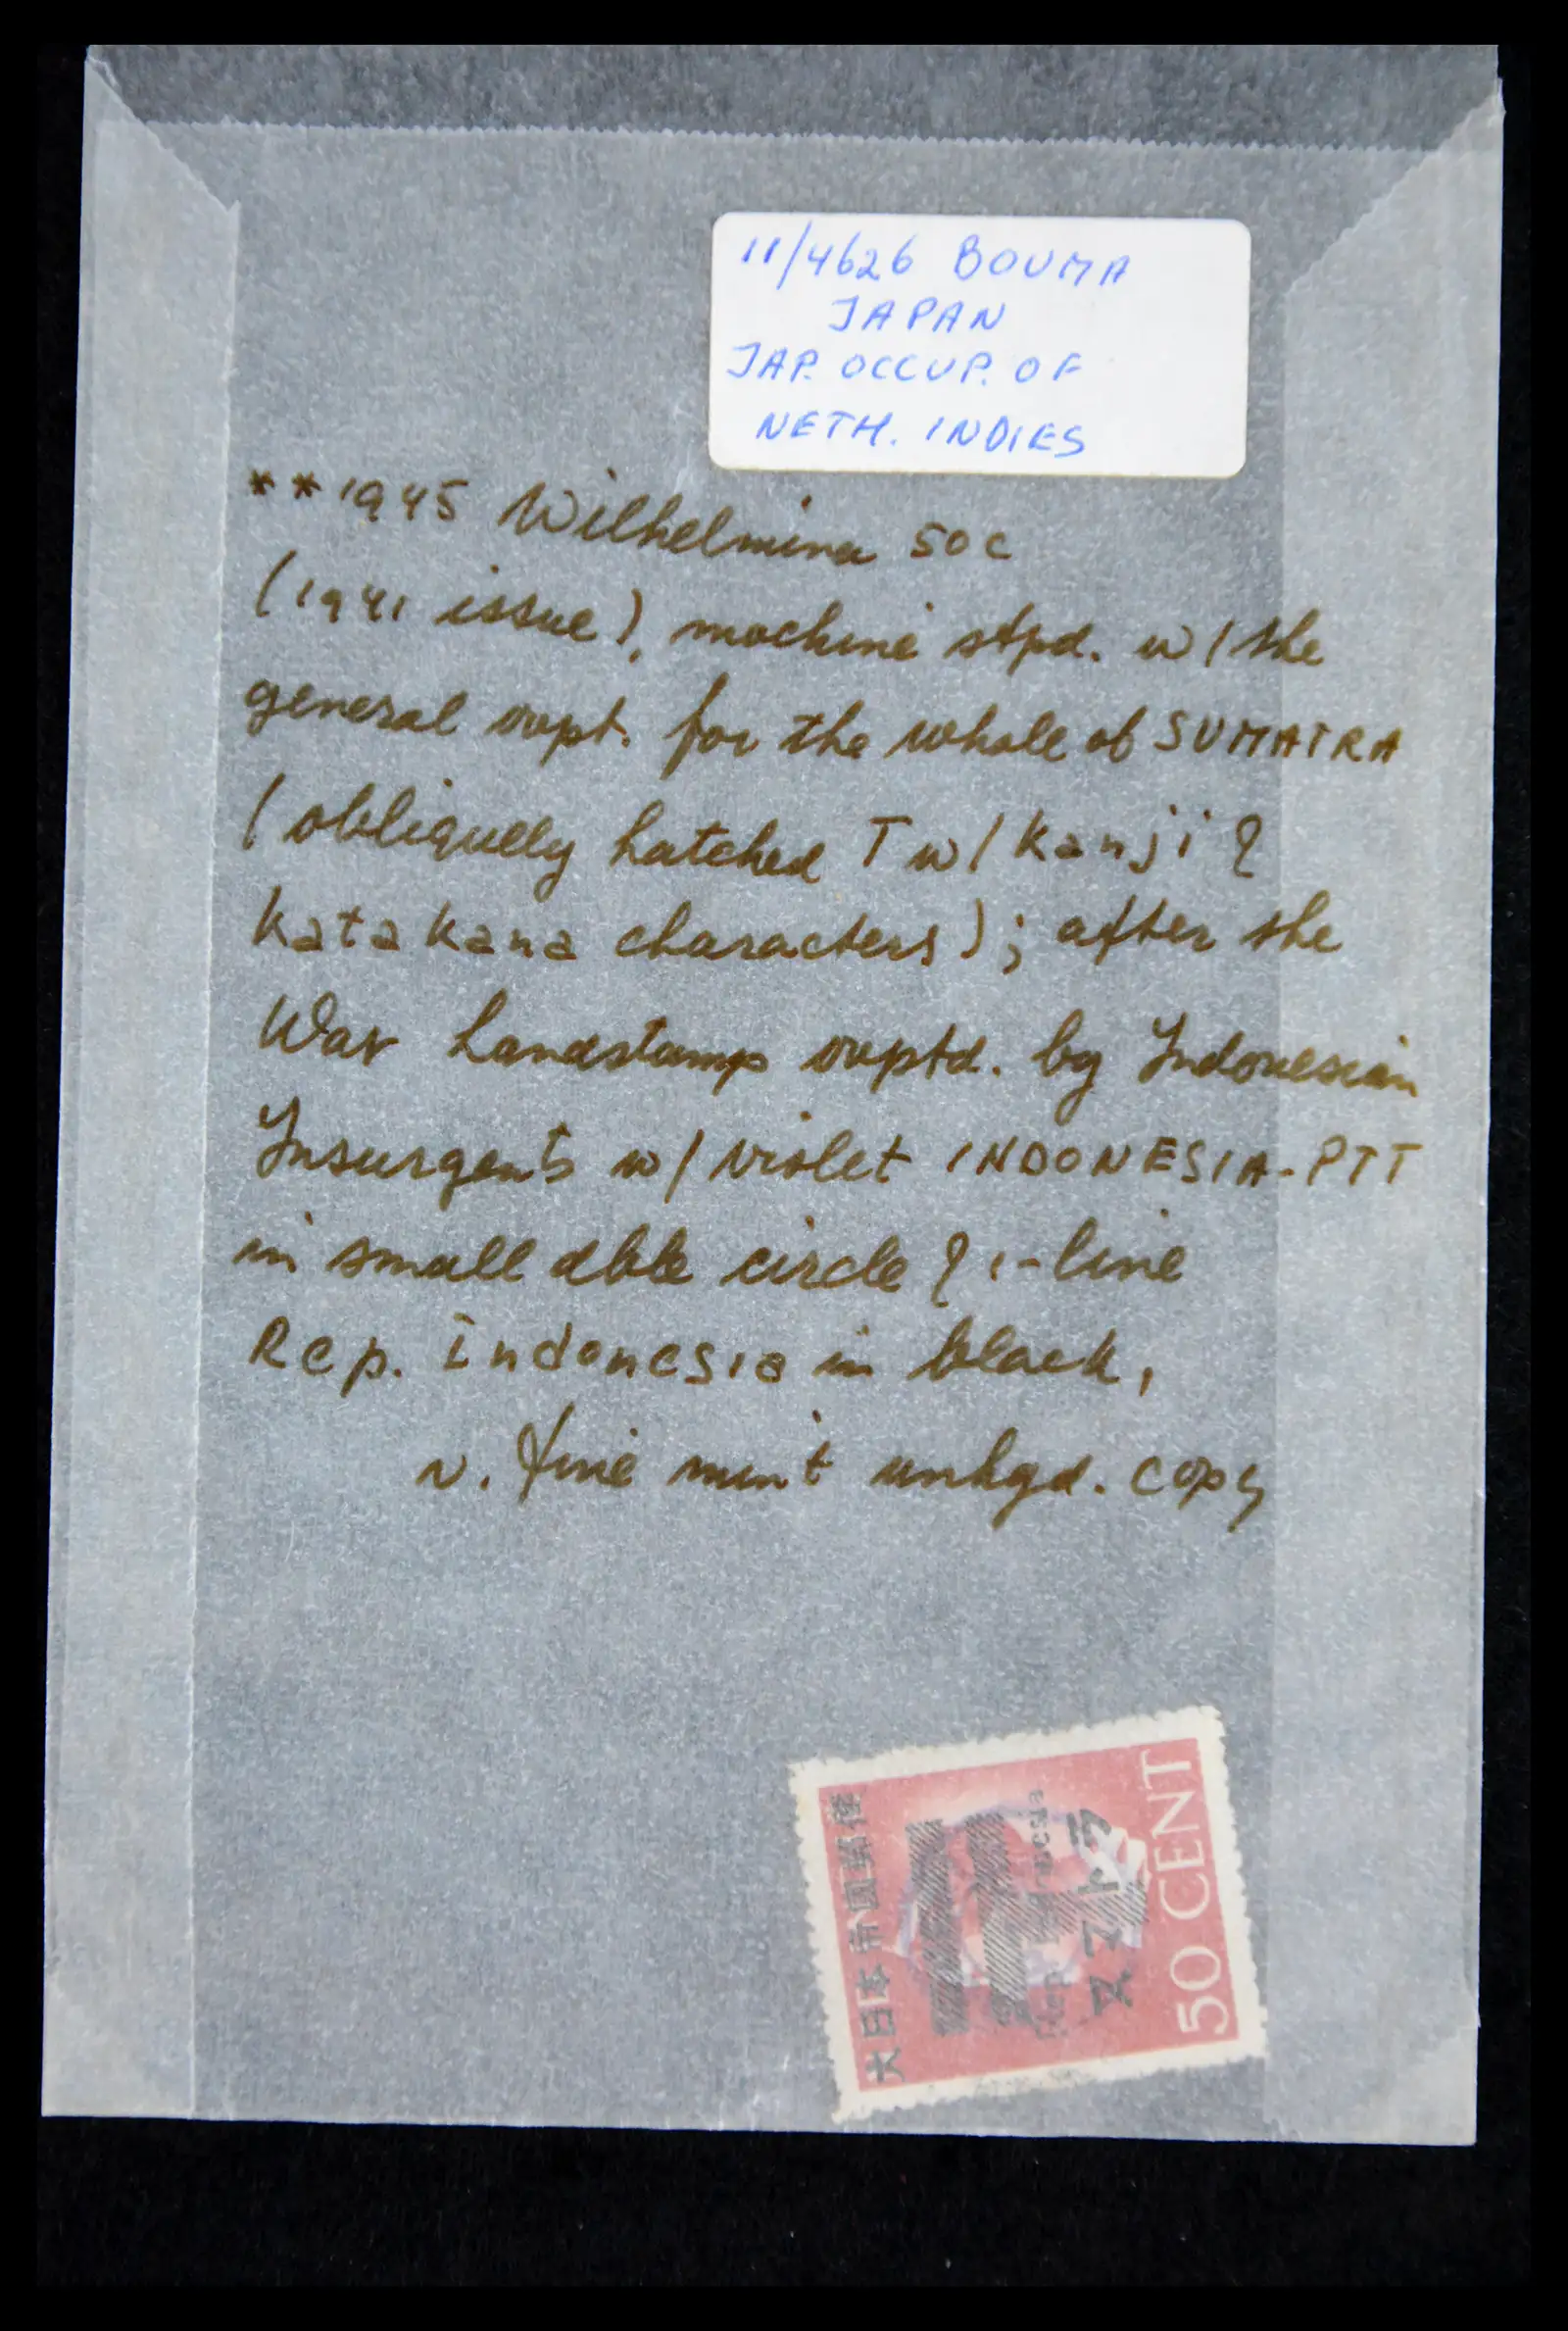 11/4626 BOUMA
JAPAN
JAP. OCCUP. OF
NETH. INDIES
**1945 Wilhelmina 50c
(1941 issue), machine stpd. w/the
general ovpt. for the whole of SUMATRA
(obliquely hatched T w/kanji &
katakana characters); after the
War handstamp ovptd. by Indonesian
Insurgents w/violet INDONESIA-PTT
in small dble circle & 1-line
Rep. Indonesia in black,
v. fine mint unhgd. copy
大日本帝國郵便
Rep. Indonesia
スマトラ
50 CENT